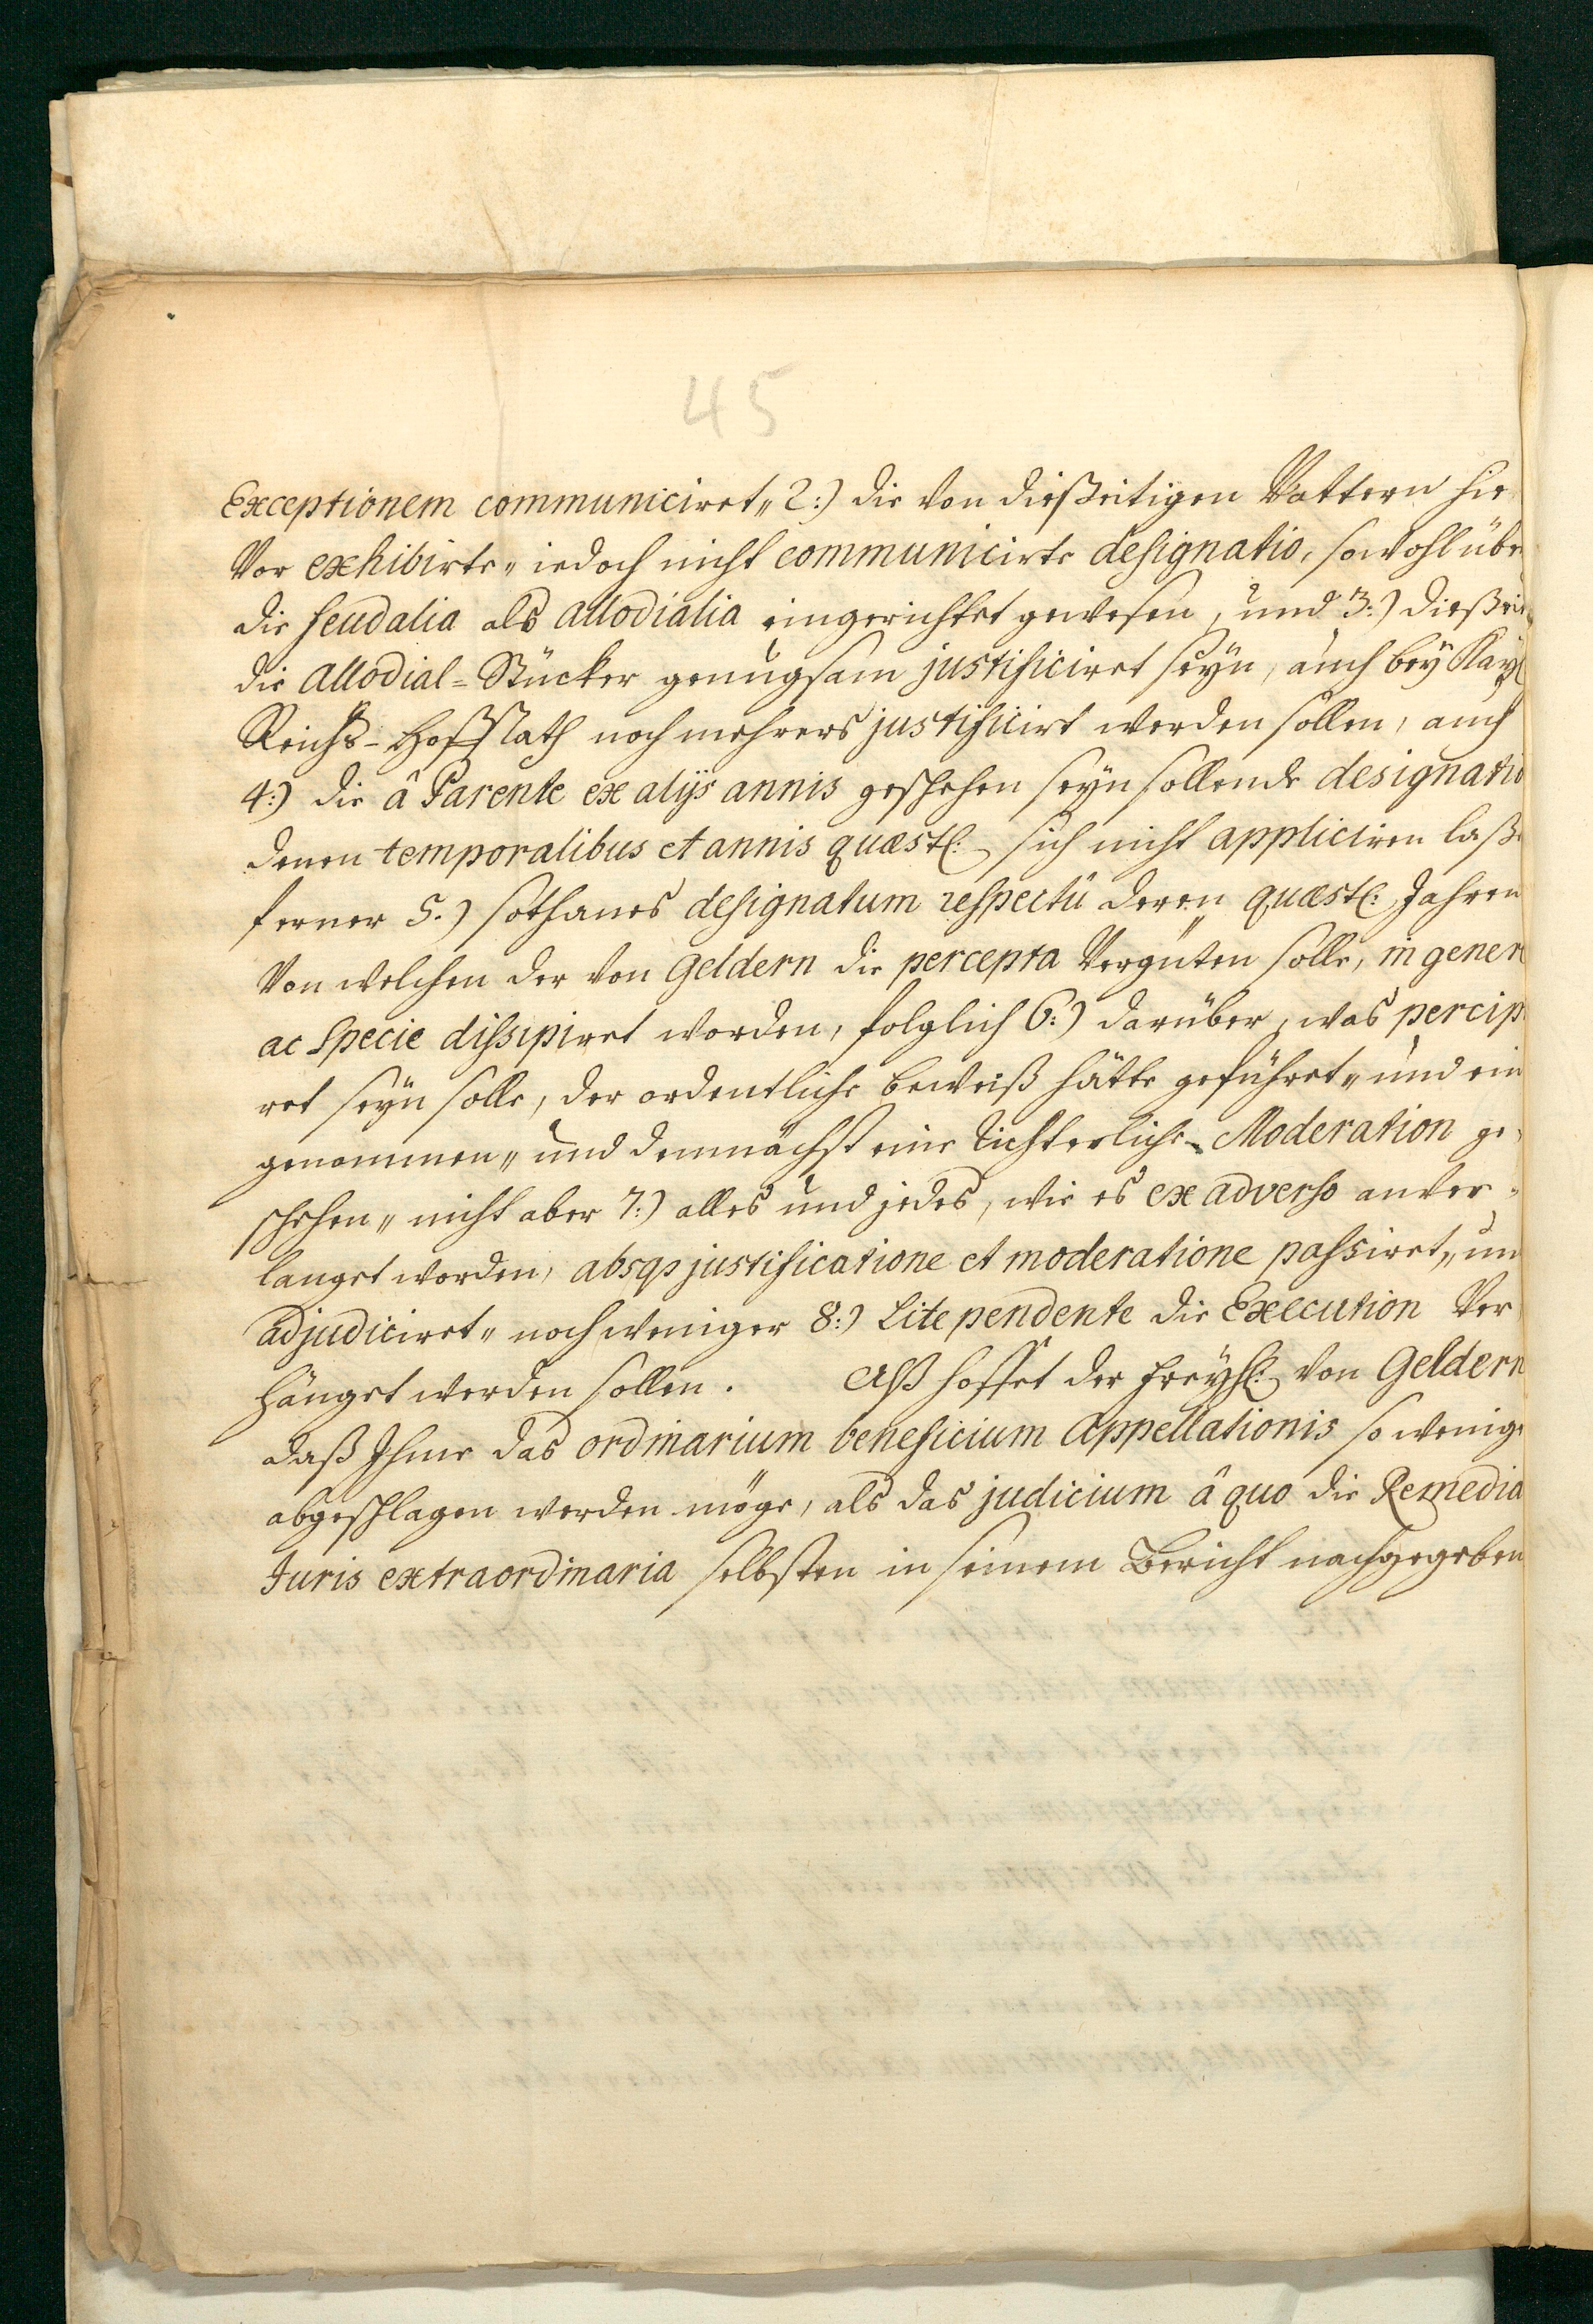 45
Exceptionem communiciret„ 2:) die von dießeitigen Vattern hie
vor exhibirte„ iedoch nicht communicirte designatio, sowohl übe
die feudalia als allodialia eingerichtet gewesen, und 3:) dießei
die Allodial-Stücker genugsam justificiret seÿn, auch beÿ Kaÿl
Reichs-HoffRath noch mehrers justificirt werden sollen, auch
4:) die â Parente ex alijs annis geschehen seÿn sollende designatio
denen temporalibus et annis quæstl: sich nicht appliciren laße
ferner 5.) sothanes designatum respectû deren quæstl: Jahren
von welchen der von Geldern die percepta vergüten solle, in gener
ac specie dissipiret worden, folglich 6:) darüber, was percip
ret seÿn solle, der ordentliche beweiß hätte geführet„ und ein
genommen„ und demnächst eine richterliche Moderation ge„
schehen„ nicht aber 7:) alles und jedes, wie es ex adverso anver„
langet worden, absqs justificatione et moderatione passiret„ un
adjudiciret„ noch weniger 8:) Lite pendente die Execution ver
hänget werden sollen. Alß hoffet der Freÿh: von Geldern
daß Ihme das ordinarium beneficium Appellationis so wenig
abgeschlagen werden möge, als das judicium â quo die Remedia
Juris extraordinaria selbsten in seinem Bericht nachgegeben